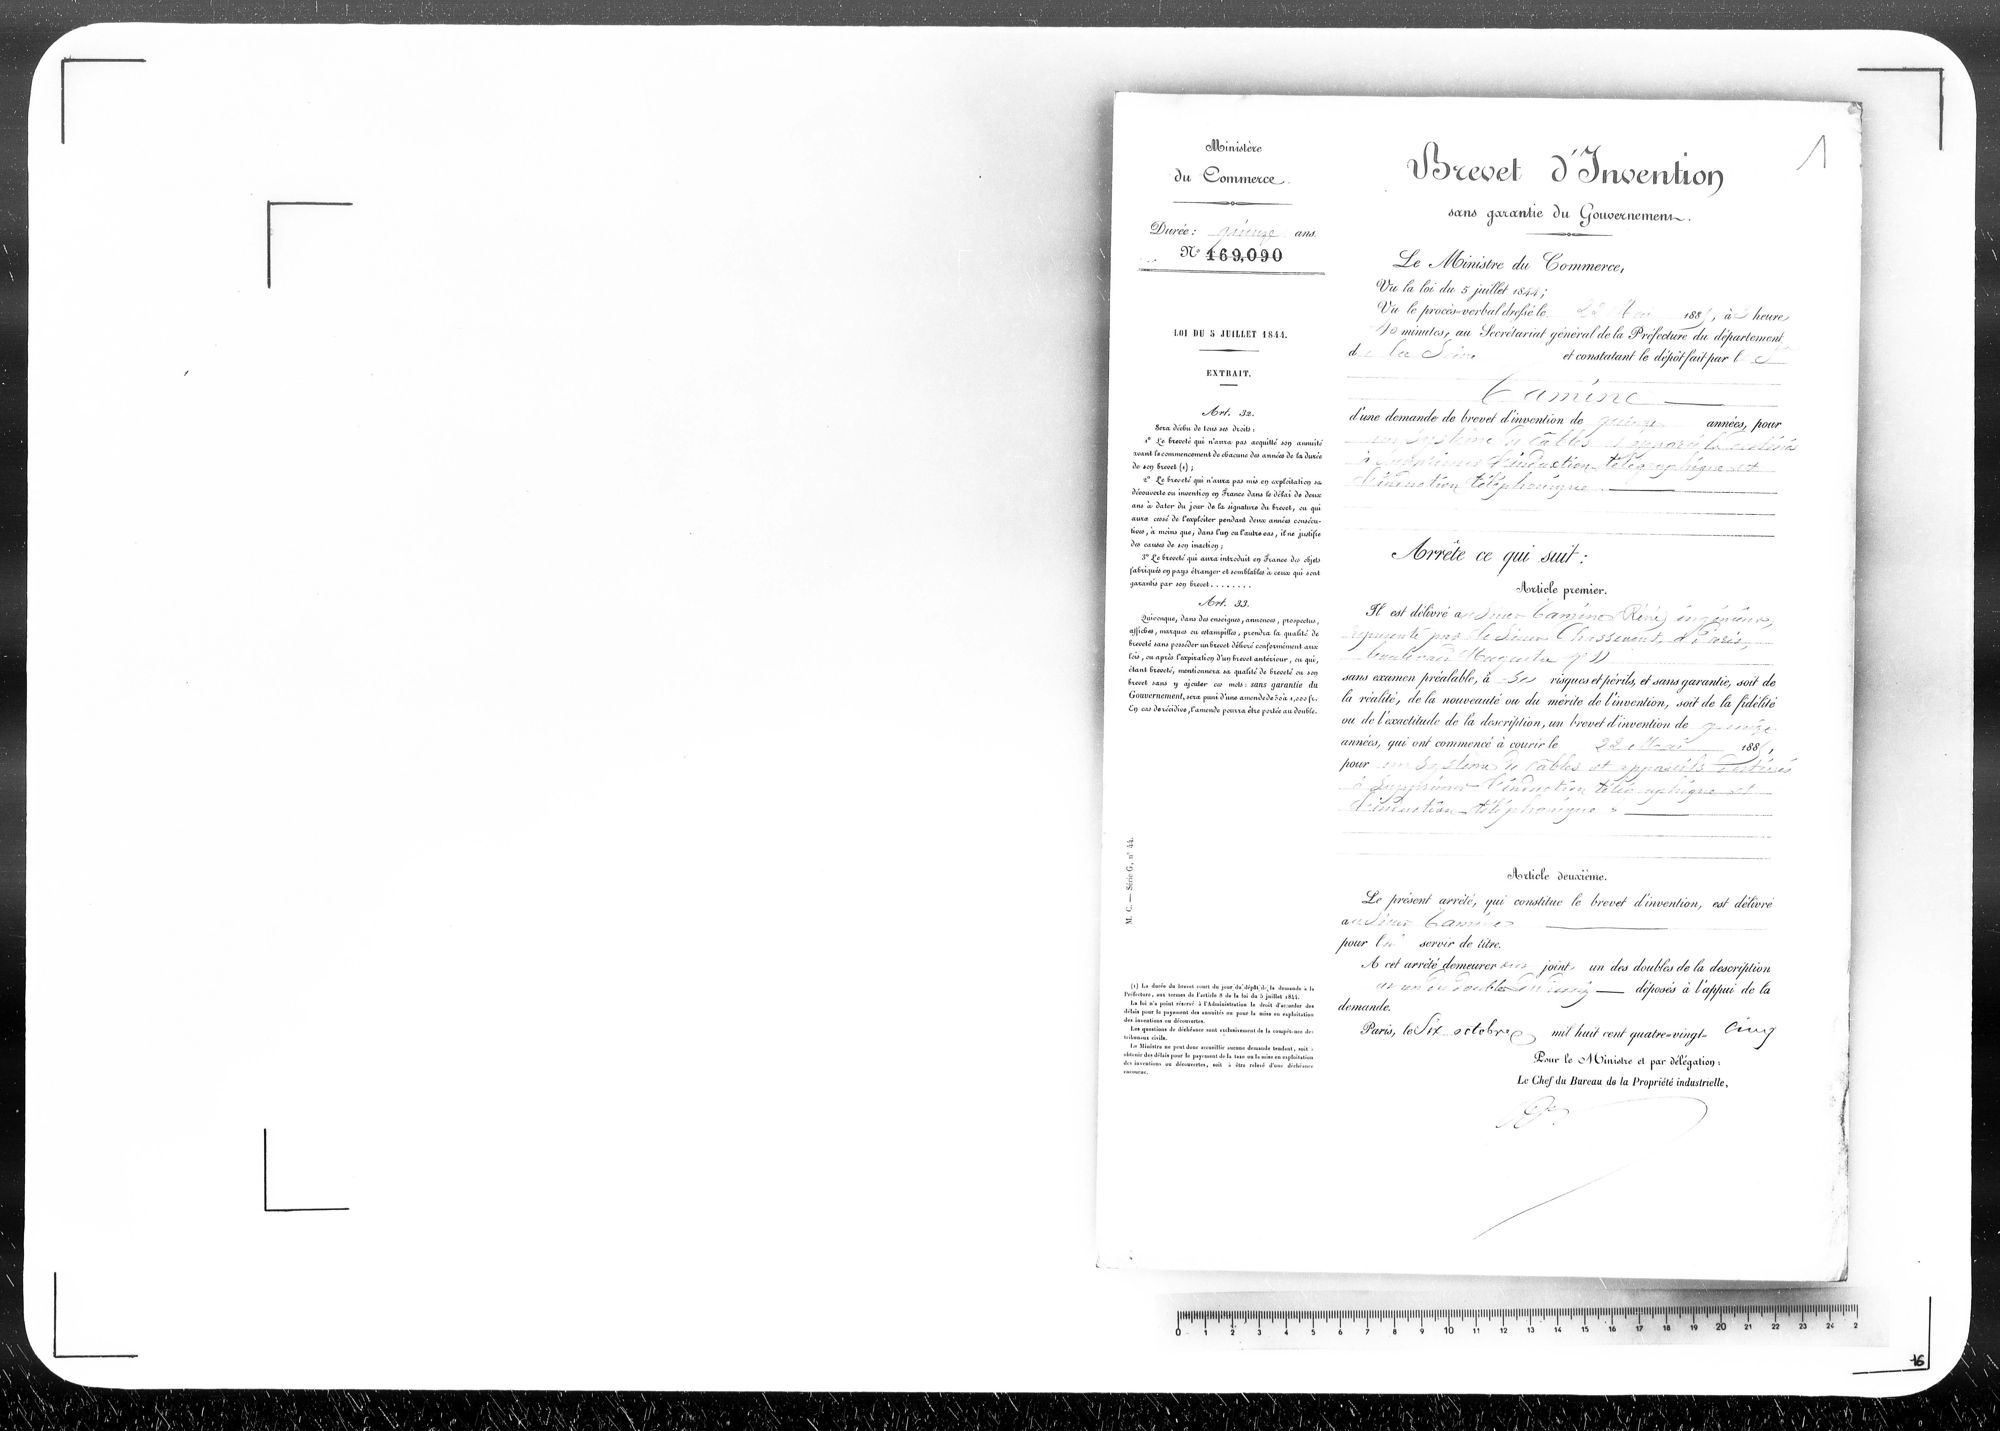 Ministère
du Commerce.
Durée: quinze ans.
N° 169,090
LOI DU 5 JUILLET 1844.
EXTRAIT.
Art. 32.
Sera déchu de tous ses droits:
1° Le breveté qui n'aura pas acquitté son annuité
avant le commencement de chacune des années de la durée
de son brevet (1);
2° Le breveté qui n'aura pas mis en exploitation sa
découverte ou invention en France dans le délai de deux
ans à dater du jour de la signature du brevet, ou qui
aura cessé de l'exploiter pendant deux années consécu-
tives, à moins que, dans l'un ou l'autre cas, il ne justifie
des causes de son inaction;
3° Le breveté qui aura introduit en France des objets
fabriqués en pays étranger et semblables à ceux qui sont
garantis par son brevet........
Art. 33.
Quiconque, dans des enseignes, annonces, prospectus,
affiches, marques ou estampilles, prendra la qualité de
breveté sans posséder un brevet délivré conformément aux
lois, ou après l'expiration d'un brevet antérieur, ou qui,
étant breveté, mentionnera sa qualité de breveté ou son
brevet sans y ajouter ces mots: sans garantie du
Gouvernement, sera puni d'une amende de 50 à 1,000 fr.
En cas de récidive, l'amende pourra être portée au double.
M. C. — Série G, n° 44.
(1) La durée du brevet court du jour du dépôt de la demande à la
Préfecture, aux termes de l'article 8 de la loi du 5 juillet 1844.
La loi n'a point réservé à l'Administration le droit d'accorder des
délais pour le payement des annuités ou pour la mise en exploitation
des inventions ou découvertes.
Les questions de déchéance sont exclusivement de la compétence des
tribunaux civils.
Le Ministre ne peut donc accueillir aucune demande tendant, soit à
obtenir des délais pour le payement de la taxe ou la mise en exploitation
des inventions ou découvertes, soit à être relevé d'une déchéance
encourue.
1
Brevet d'Invention
sans garantie du Gouvernement.
Le Ministre du Commerce,
Vu la loi du 5 juillet 1844;
Vu le procès-verbal dressé le 22 Mai 1885, à 3 heure
10 minutes, au Secrétariat général de la Préfecture du département
de la Seine et constatant le dépôt fait par le Sr
Tamine
d'une demande de brevet d'invention de quinze années, pour
un système de câbles et appareils destinés
à supprimer l'induction télégraphique et
l'induction téléphonique
Arrête ce qui suit:
Article premier.
Il est délivré au sieur Tamine (Réné) ingénieur,
représenté par le sieur Chassevent, à Paris,
boulevard Magenta n° 11
sans examen préalable, à ses risques et périls, et sans garantie, soit de
la réalité, de la nouveauté ou du mérite de l'invention, soit de la fidélité
ou de l'exactitude de la description, un brevet d'invention de quinze
années, qui ont commencé à courir le 22 Mai 1885,
pour un système de câbles et appareils destinés
à supprimer l'induction télégraphique et
l'induction téléphonique
Article deuxième.
Le présent arrêté, qui constitue le brevet d'invention, est délivré
au sieur Tamine
pour lui servir de titre.
A cet arrêté demeurer joint un des doubles de la description
et un des doubles du dessin déposés à l'appui de la
demande.
Paris, le Six octobre mil huit cent quatre-vingt- cinq
Pour le Ministre et par délégation:
Le Chef du Bureau de la Propriété industrielle,
0 1 2 3 4 5 6 7 8 9 10 11 12 13 14 15 16 17 18 19 20 21 22 23 24 2
16